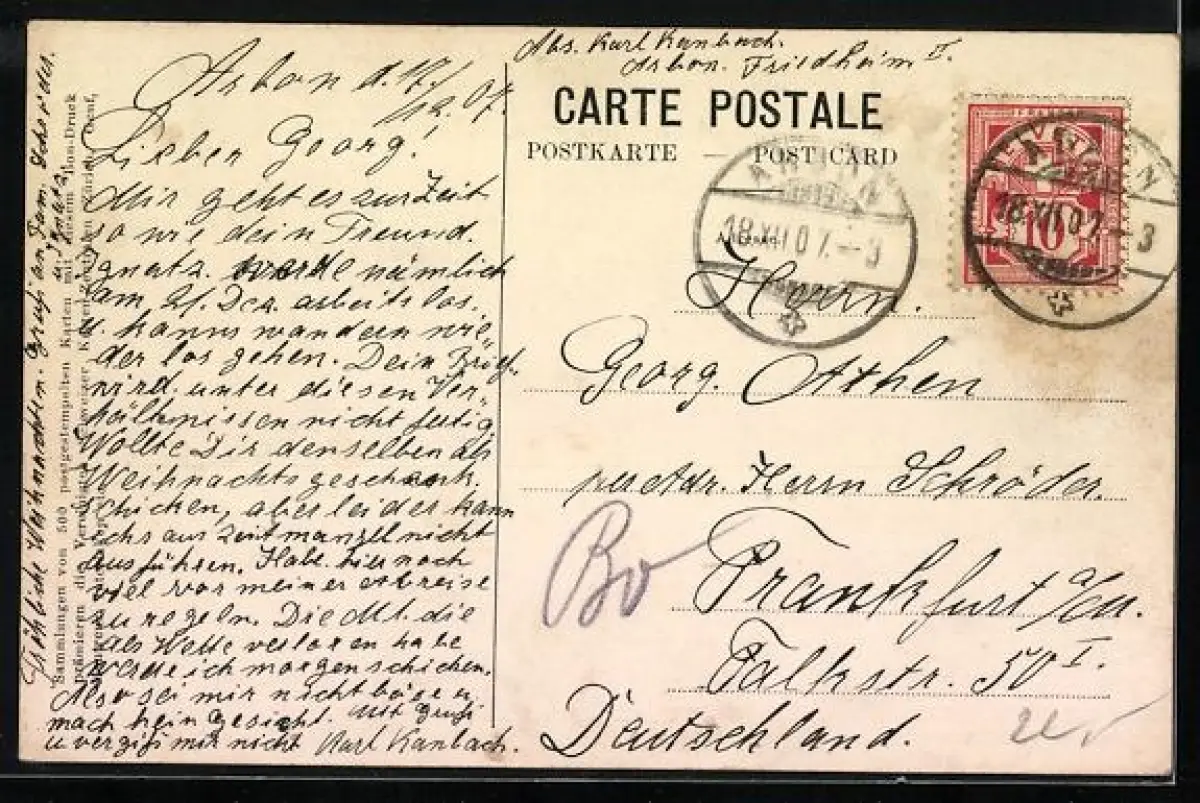 Abs. Karl Kanbach.
Arbon. Friedheim II.
CARTE POSTALE
POSTKARTE — POST CARD
ARBON
18.XII.07.–3
ARBON
18.XII.07.–3
10
Arbon d. 17./
12.07.
Lieber Georg!
Mir geht es zur Zeit
so wie dein Freund.
Ignatz. werde nämlich
am 21. Dez. arbeitslos
u. kanns wandern wie„
der los gehen. Dein Brief.
wird unter diesen Ver„
hältnissen nicht fertig
Wollte Dir denselben als
Weihnachtsgeschenk.
schicken, aber leider kann
ichs aus Zeitmangel nicht
ausführen. Habe hier noch
viel vor meiner Abreise
zu regeln. Die M1. die
als Wette verloren habe
werde ich morgen schicken.
Also sei mir nicht böse u.
mach kein Gesicht. Mit Gruß
u vergiß mir nicht Karl Kanbach.
Fröhliche Weihnachten. Gruß an Fam.
u Ignatz.
Sammlungen von 500 postgestempelten Karten mit diesem Bon-Druck
prämieren die
Herrn.
Georg. Athen
per Adr. Herrn Schröder.
Frankfurt a/M.
Falkstr. 50 I.
Deutschland.
Bo